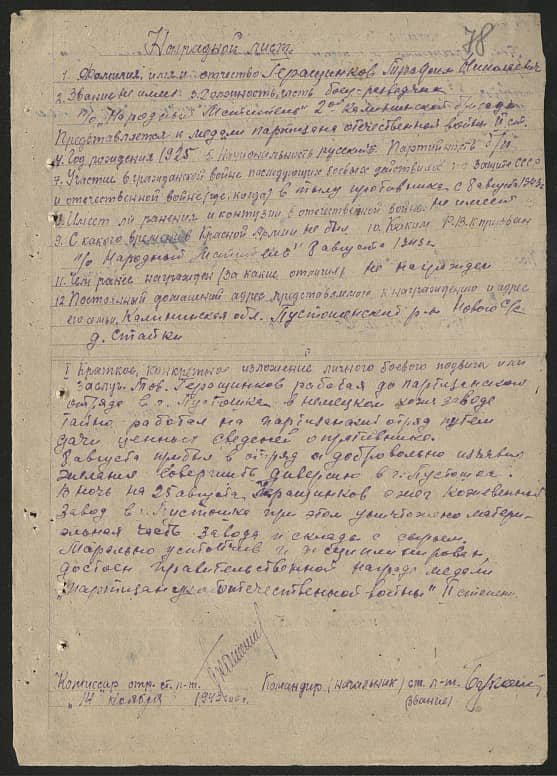 78
Наградной лист
1. Фамилия, имя и отчество Геращинков Николаевич
2. Звание не имеет 3. Должность, часть боец-разведчик
п/о "Народный Мститель" 2ой Калининской бригады
Представляется к медали партизана отечественной войны II ст.
4. Год рождения 1925 5. Национальность русский 6. Партийность б/п
7. Участие в гражданской войне последующих боевых действиях по защите СССР
и отечественной войне (где, когда) в тылу противника с 8 августа 1943 г
8. Имеет ли ранения и контузии в отечественной войне не имеет
9. С какого времени в Красной Армии не был 10. Каким РВК призван
п/о Народный Мститель 8 августа 1943 г.
11. Чем ранее награжден (за какие отличия) не награжден
12. Постоянный домашний адрес представляемого к награждению и адрес
его семьи Калининская обл. Пустошкинский р-н Новога с/с
д. Стайки
I Краткое, конкретное изложение личного боевого подвига или
заслуг. Тов. Геращинков работая до партизанского
отряда в г. Пустошке в немецкой кож заводе
тайно работал на партизанский отряд путем
дачи ценных сведений о противнике.
8 августа прибыл в отряд и добровольно изъявил
желания совершить диверсию в г. Пустошка.
В ночь на 25 августа Геращинков сжег Кожевенный
завод в г. Пустошка при этом уничтожено матери-
альная часть завода и склада с сырьем.
Морально устойчив и дисциплинирован,
достоен правительственной награде медали
"Партизану отечественной войны" II степени.
Комиссар отр. ст. л-т. Командир (начальник) ст. л-т.
"14" ноября 1943 года (звание)